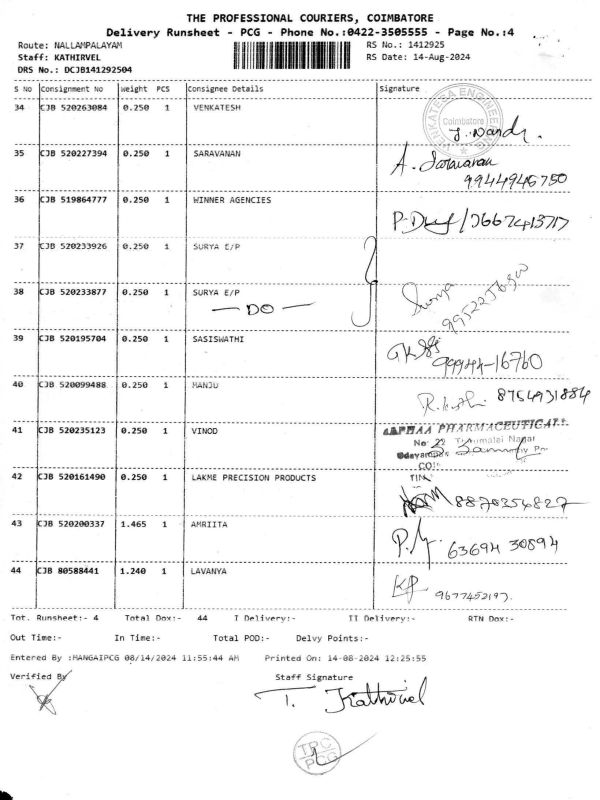 THE PROFESSIONAL COURIERS, COIMBATORE
Delivery Runsheet - PCG - Phone No.:0422-3505555 - Page No.:4
Route: NALLAMPALAYAM RS No.: 1412925
Staff: KATHIRVEL RS Date: 14-Aug-2024
DRS No.: DCJB141292504
S No Consignment No Weight PCS Consignee Details Signature
34 CJB 520263084 0.250 1 VENKATESH
VENKATESA ENGINEERING
Coimbatore
J. Nandy.
35 CJB 520227394 0.250 1 SARAVANAN A. Saravanan
9944946750
36 CJB 519864777 0.250 1 WINNER AGENCIES
37 CJB 520233926 0.250 1 SURYA E/P
38 CJB 520233877 0.250 1 SURYA E/P Surya
— DO —
39 CJB 520195704 0.250 1 SASISWATHI
99944-16760
40 CJB 520099488 0.250 1 MANJU 8754931884
41 CJB 520235123 0.250 1 VINOD
PHARMACEUTICAL
Nagar
42 CJB 520161490 0.250 1 LAKME PRECISION PRODUCTS
8870354827
43 CJB 520200337 1.465 1 AMRIITA
63694 30894
44 CJB 80588441 1.240 1 LAVANYA
9677452197.
Tot. Runsheet:- 4 Total Dox:- 44 I Delivery:- II Delivery:- RTN Dox:-
Out Time:- In Time:- Total POD:- Delvy Points:-
Entered By :MANGAIPCG 08/14/2024 11:55:44 AM Printed On: 14-08-2024 12:25:55
Verified By Staff Signature
T. Kathirvel
TPC
PCG